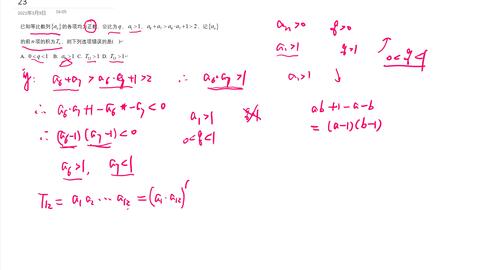 23
2021年3月9日 16:05
已知等比数列{aₙ}的各项均为正数，公比为q，a₁>1，a₆+a₇>a₆·a₇+1>2，记{aₙ}
的前n项的积为Tₙ，则下列选项错误的是( )
A. 0<q<1 B. a₆>1 C. T₁₂>1 D. T₁₃>1
aₙ>0 q>0
a₁>1 q>1
0<q<1
a₁>1
a₆+a₇>a₆·a₇+1>2 ∴ a₆·a₇>1
∴ a₆·a₇+1-a₆-a₇<0
∴ (a₆-1)(a₇-1)<0
a₆>1, a₇<1
a₁>1
0<q<1
ab+1-a-b
=(a-1)(b-1)
T₁₂=a₁a₂⋯a₁₂=(a₁·a₁₂)